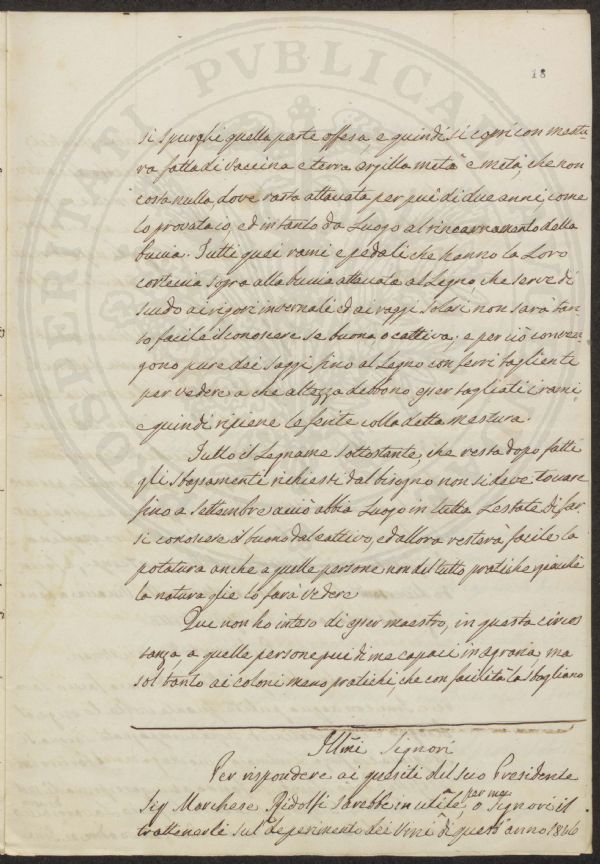 PROSPERITATI PVBLICAE
18
si spurghi quella parte offesa, e quindi si copri con mestu-
ra fatta di vaccina e terra argilla metà e metà, che non
costa nulla, dove resta attaccata per piu' di due anni, come
lo provata io, ed intanto da Luogo al rincarnamento della
buccia. Tutti quei rami e pedali che hanno la Loro
corteccia sopra alla buccia attaccata al Legno, che serve di
scudo ai rigori invernali ed ai raggi solari non sarà tan-
to facile il conoscere se buona o cattiva: e per ciò conven-
gono pure dei saggi fino al Legno con ferri tagliente
per vedere a che altezza debbono esser tagliati i rami
e quindi ripiene le ferite colla detta mestura.
Tutto il Legname sottostante, che resta dopo fatti
gli sbassamenti richiesti dal bisogno non si deve toccare
fino a Settembre acciò abbia Luogo in tutta L'estate di far-
si conoscere il buono dal cattivo, ed allora resterà facile la
potatura anche a quelle persone non del tutto pratiche giacchè
la natura glie lo farà vedere
Que non ho inteso di esser maestro, in questa circos
tanza, a quelle persone piu di me capaci in agraria ma
sol tanto ai coloni meno pratichi, che con facilità la sbagliano
Illmi Signori
Per rispondere ai quesiti del suo Presidente
Sig Marchese Ridolfi sarebbe inutile per me o Signori il
trattenerli sul deperimento dei Vini di quest' anno 1846